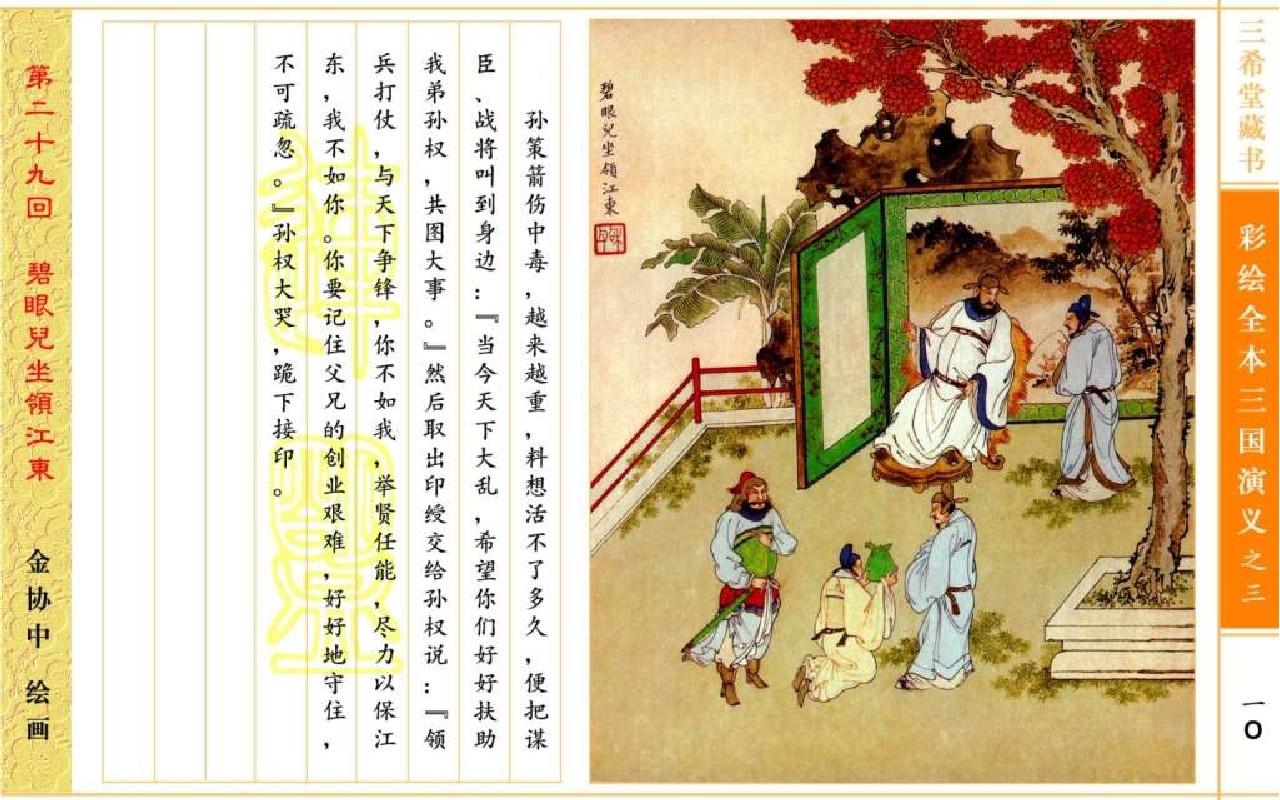 三希堂藏书
彩绘全本三国演义之三
一〇
碧眼兒坐領江東
孙策箭伤中毒，越来越重，料想活不了多久，便把谋
臣、战将叫到身边：『当今天下大乱，希望你们好好扶助
我弟孙权，共图大事。』然后取出印绶交给孙权说：『领
兵打仗，与天下争锋，你不如我，举贤任能，尽力以保江
东，我不如你。你要记住父兄的创业艰难，好好地守住，
不可疏忽。』孙权大哭，跪下接印。
第二十九回 碧眼兒坐領江東
金协中 绘画